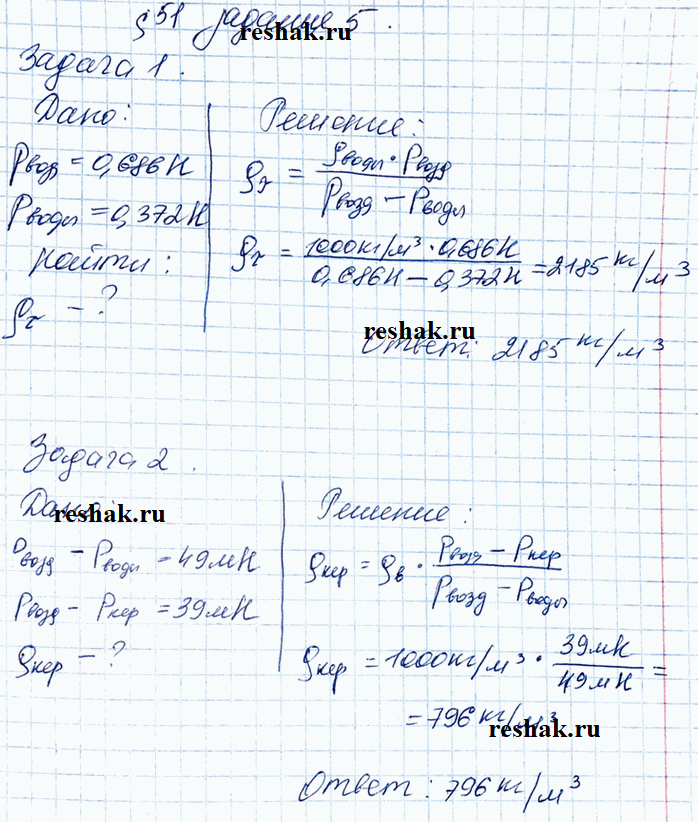 §51 задание 5.
reshak.ru
Задача 1.
Дано:
Pвозд = 0,686 Н
Pводы = 0,372 Н
Найти:
ρт - ?
Решение:
ρт = ρводы · Pвозд / Pвозд - Pводы
ρт = 1000 кг/м³ · 0,686 Н / 0,686 Н - 0,372 Н = 2185 кг/м³
reshak.ru
Ответ: 2185 кг/м³
Задача 2.
Дано:
reshak.ru
Pвозд - Pводы = 49 мН
Pвозд - Pкер = 39 мН
ρкер - ?
Решение:
ρкер = ρв · Pвозд - Pкер / Pвозд - Pводы
ρкер = 1000 кг/м³ · 39 мН / 49 мН =
= 796 кг/м³
reshak.ru
Ответ: 796 кг/м³